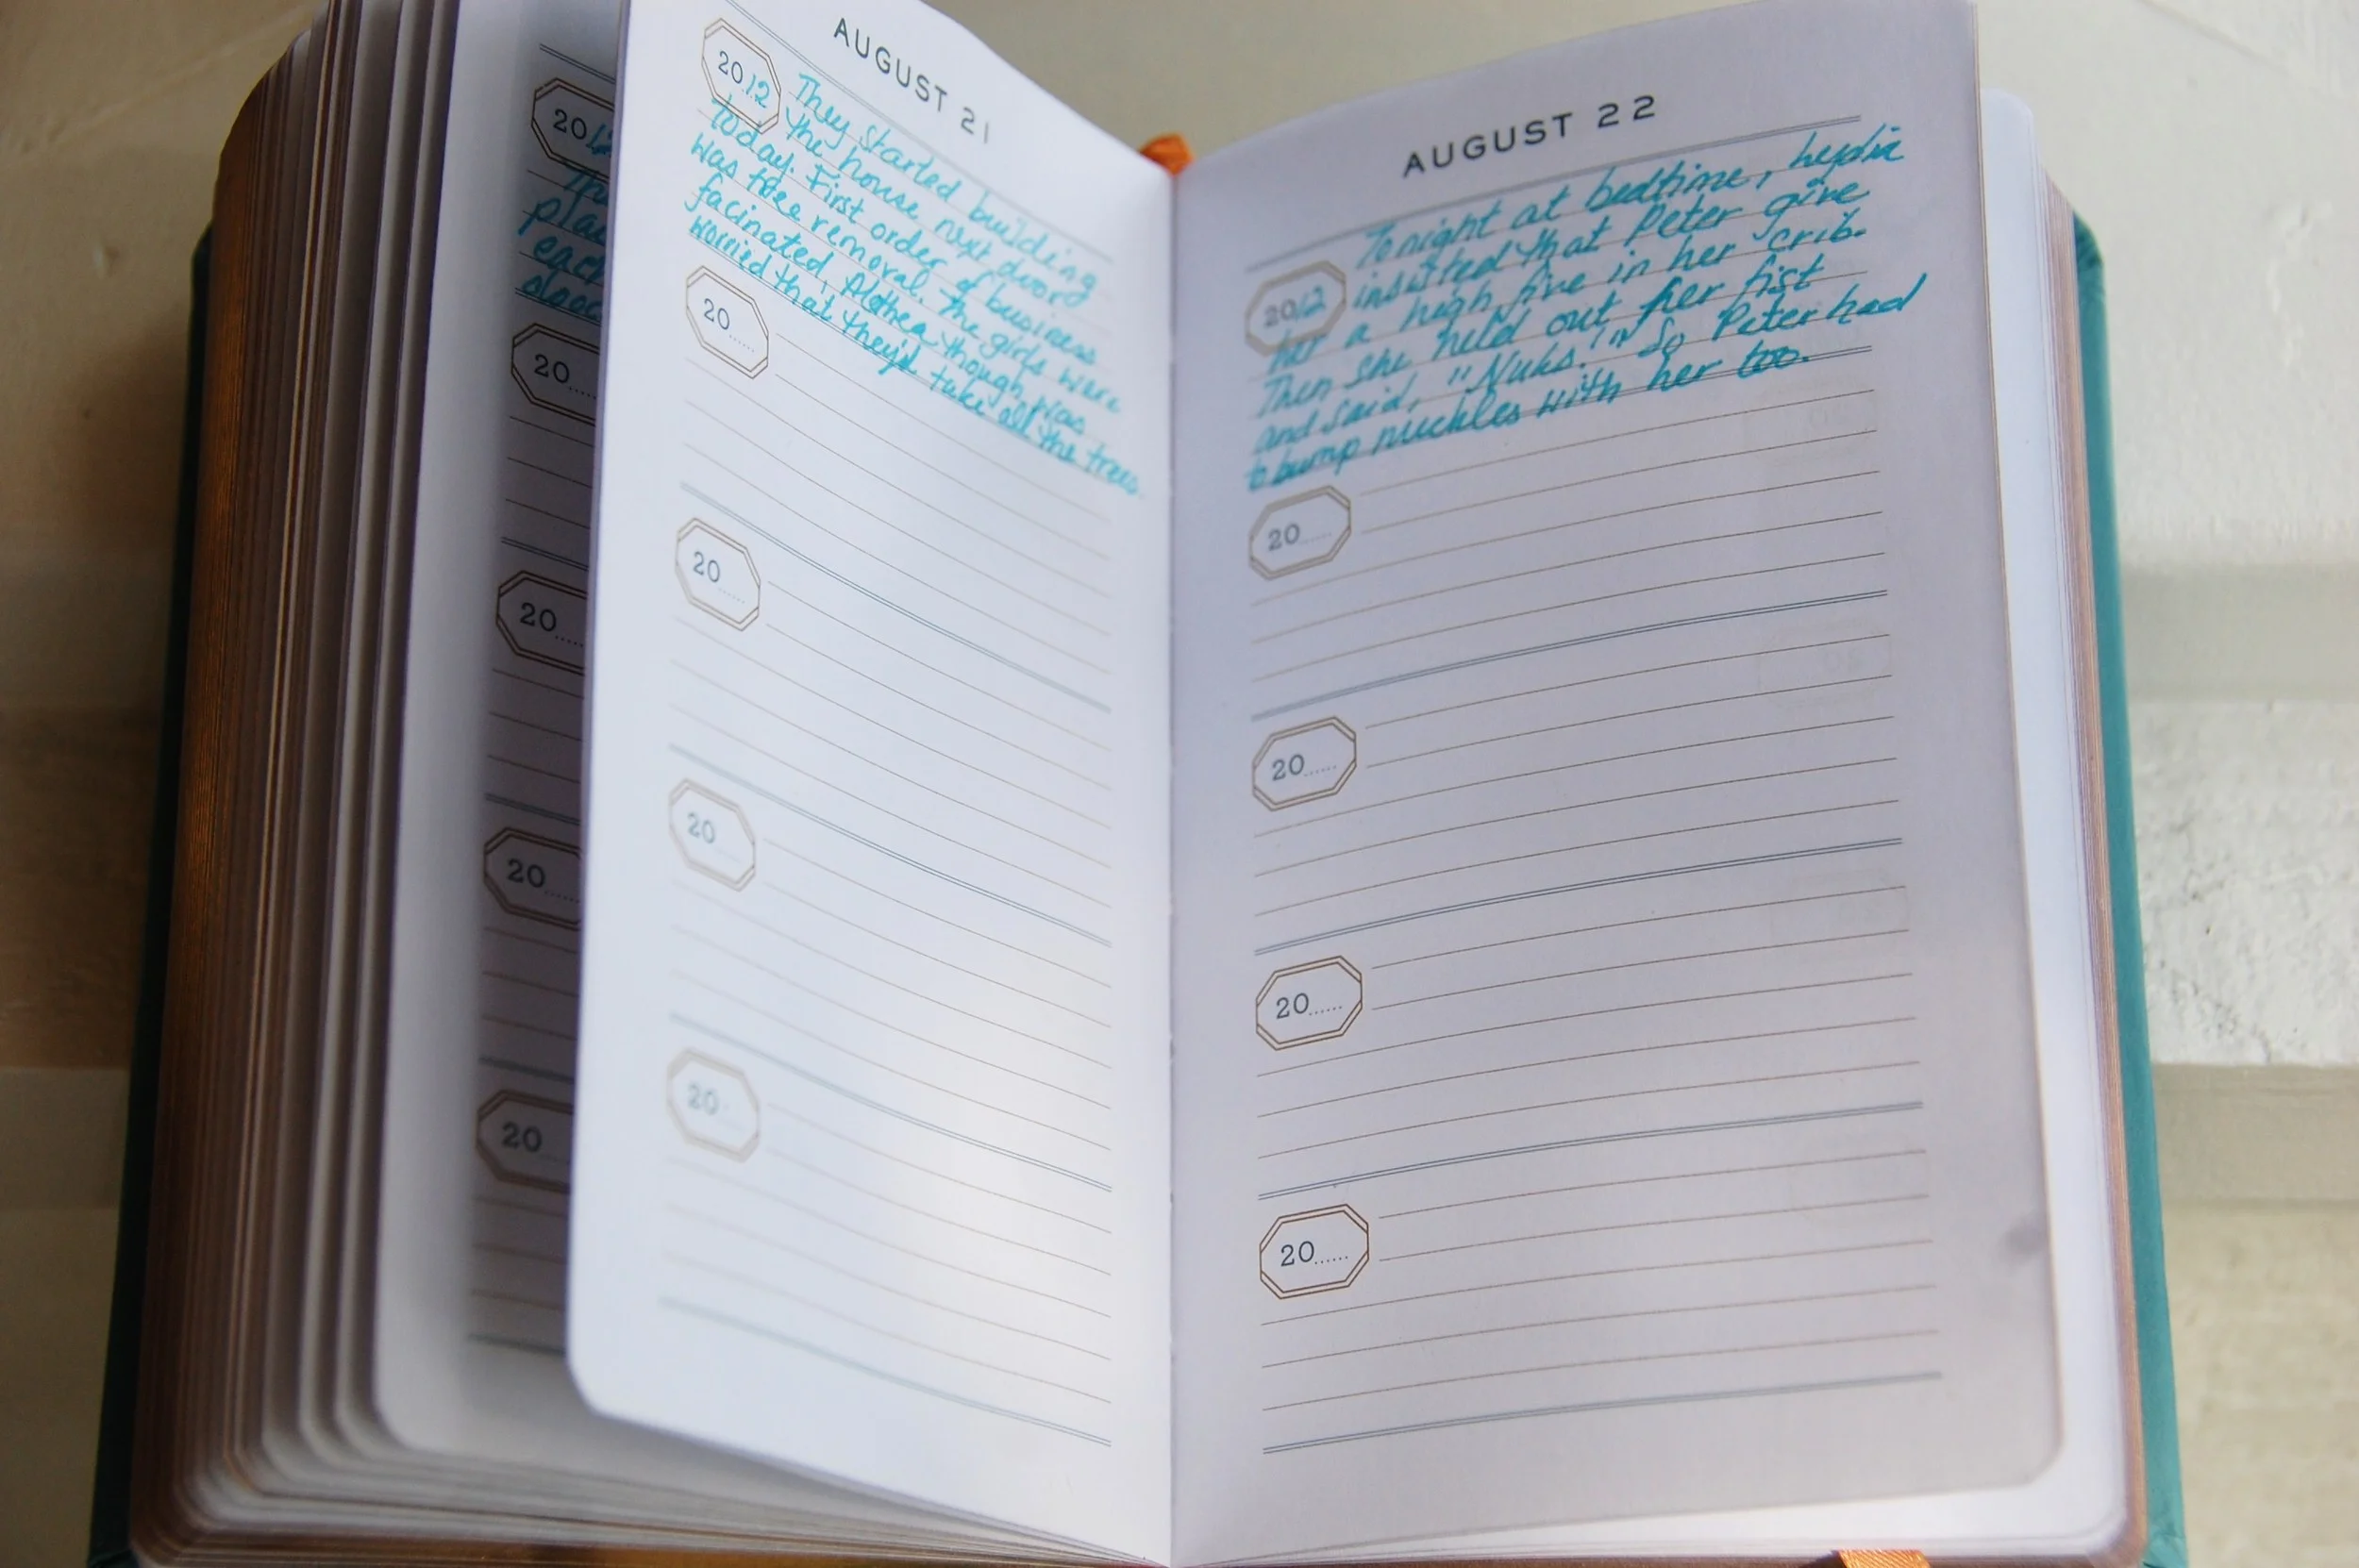 AUGUST 21
2012 They started building
the house next door
today. First order of business
was tree removal. The girls were
facinated, though, was
worried that they'd take all the trees.
20......
20......
20......
20......
AUGUST 22
Tonight at bedtime, Lydia
2012 insisted that Peter give
her a high five in her crib.
Then she held out her fist
and said, "Nuks!" So Peter had
to bump nuckles with her too.
20......
20......
20......
20......
2012
each
20......
20......
20......
20......